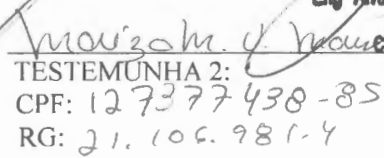 TESTEMUNHA 2:
CPF: 127377438-85
RG: 21.106.981-4